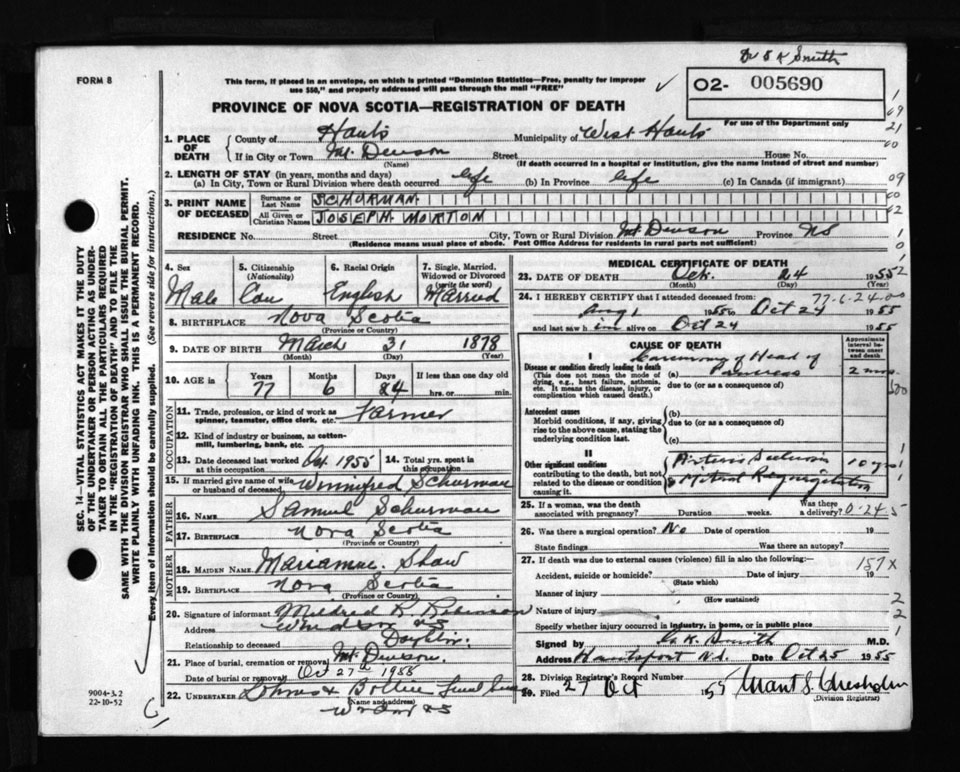 Dr S K Smith
FORM 8
This form, if placed in an envelope, on which is printed "Dominion Statistics—Free, penalty for improper
use $50," and properly addressed will pass through the mail "FREE"
02- 005690
For use of the Department only
PROVINCE OF NOVA SCOTIA—REGISTRATION OF DEATH
1. PLACE OF DEATH
County of Hants Municipality of West Hants
If in City or Town Mt. Denson Street House No.
(Name) (If death occurred in a hospital or institution, give the name instead of street and number)
2. LENGTH OF STAY (in years, months and days)
(a) In City, Town or Rural Division where death occurred life (b) In Province life (c) In Canada (if immigrant)
3. PRINT NAME OF DECEASED
Surname or Last Name SCHURMAN
All Given or Christian Names JOSEPH MORTON
RESIDENCE No. Street City, Town or Rural Division Mt Denson Province NS
(Residence means usual place of abode. Post Office Address for residents in rural parts not sufficient)
4. Sex Male
5. Citizenship (Nationality) Can
6. Racial Origin English
7. Single, Married, Widowed or Divorced (write the word) Married
8. BIRTHPLACE Nova Scotia
(Province or Country)
9. DATE OF BIRTH March 31 1878
(Month) (Day) (Year)
10. AGE in Years 77 Months 6 Days 24 If less than one day old hrs. or min.
OCCUPATION
11. Trade, profession, or kind of work as spinner, teamster, office clerk, etc. Farmer
12. Kind of industry or business, as cotton-mill, lumbering, bank, etc.
13. Date deceased last worked at this occupation Oct 1955
14. Total yrs. spent in this occupation
15. If married give name of wife or husband of deceased Winnifred Schurman
FATHER
16. NAME Samuel Schurman
17. BIRTHPLACE Nova Scotia
(Province or Country)
MOTHER
18. MAIDEN NAME Mariamne Shaw
19. BIRTHPLACE Nova Scotia
(Province or Country)
20. Signature of informant Mildred R. Robinson
Address Windsor NS
Relationship to deceased Daughter
21. Place of burial, cremation or removal Mt Denson.
Date of burial or removal Oct 27th 1955
22. UNDERTAKER
(Name and address)
Windsor NS
MEDICAL CERTIFICATE OF DEATH
23. DATE OF DEATH Oct. 24 1955
(Month) (Day) (Year)
24. I HEREBY CERTIFY that I attended deceased from 77-6-24-00
Aug 1 1955 to Oct 24 1955
and last saw him alive on Oct 24 1955
CAUSE OF DEATH
Approximate interval between onset and death
I
Disease or condition directly leading to death
(This does not mean the mode of dying, e.g., heart failure, asthenia, etc. It means the disease, injury, or complication which caused death.)
(a) Carcinoma of Head of Pancreas 2 mos.
due to (or as a consequence of)
Antecedent causes
Morbid conditions, if any, giving rise to the above cause, stating the underlying condition last.
(b)
due to (or as a consequence of)
(c)
II
Other significant conditions contributing to the death, but not related to the disease or condition causing it.
Arterio Sclerosis 10 yrs
& Mitral Regurgitation
25. If a woman, was the death associated with pregnancy? Duration weeks. Was there a delivery?
0-24-5
26. Was there a surgical operation? No Date of operation 19
State findings Was there an autopsy?
27. If death was due to external causes (violence) fill in also the following:—
157X
Accident, suicide or homicide? Date of injury 19
(State which)
Manner of injury
(How sustained)
Nature of injury
Specify whether injury occurred in industry, in home, or in public place
Signed by S. K. Smith M.D.
Address Hantsport N.S. Date Oct 25 1955
28. Division Registrar's Record Number
29. Filed 27 Oct 1955
(Division Registrar)
SEC. 14—VITAL STATISTICS ACT MAKES IT THE DUTY
OF THE UNDERTAKER OR PERSON ACTING AS UNDER-
TAKER TO OBTAIN ALL THE PARTICULARS REQUIRED
IN THE "REGISTRATION OF DEATH" AND TO FILE THE
SAME WITH THE DIVISION REGISTRAR WHO SHALL ISSUE THE BURIAL PERMIT.
WRITE PLAINLY WITH UNFADING INK. THIS IS A PERMANENT RECORD.
Every item of information should be carefully supplied. (See reverse side for instructions.)
9004-3.2
22-10-52